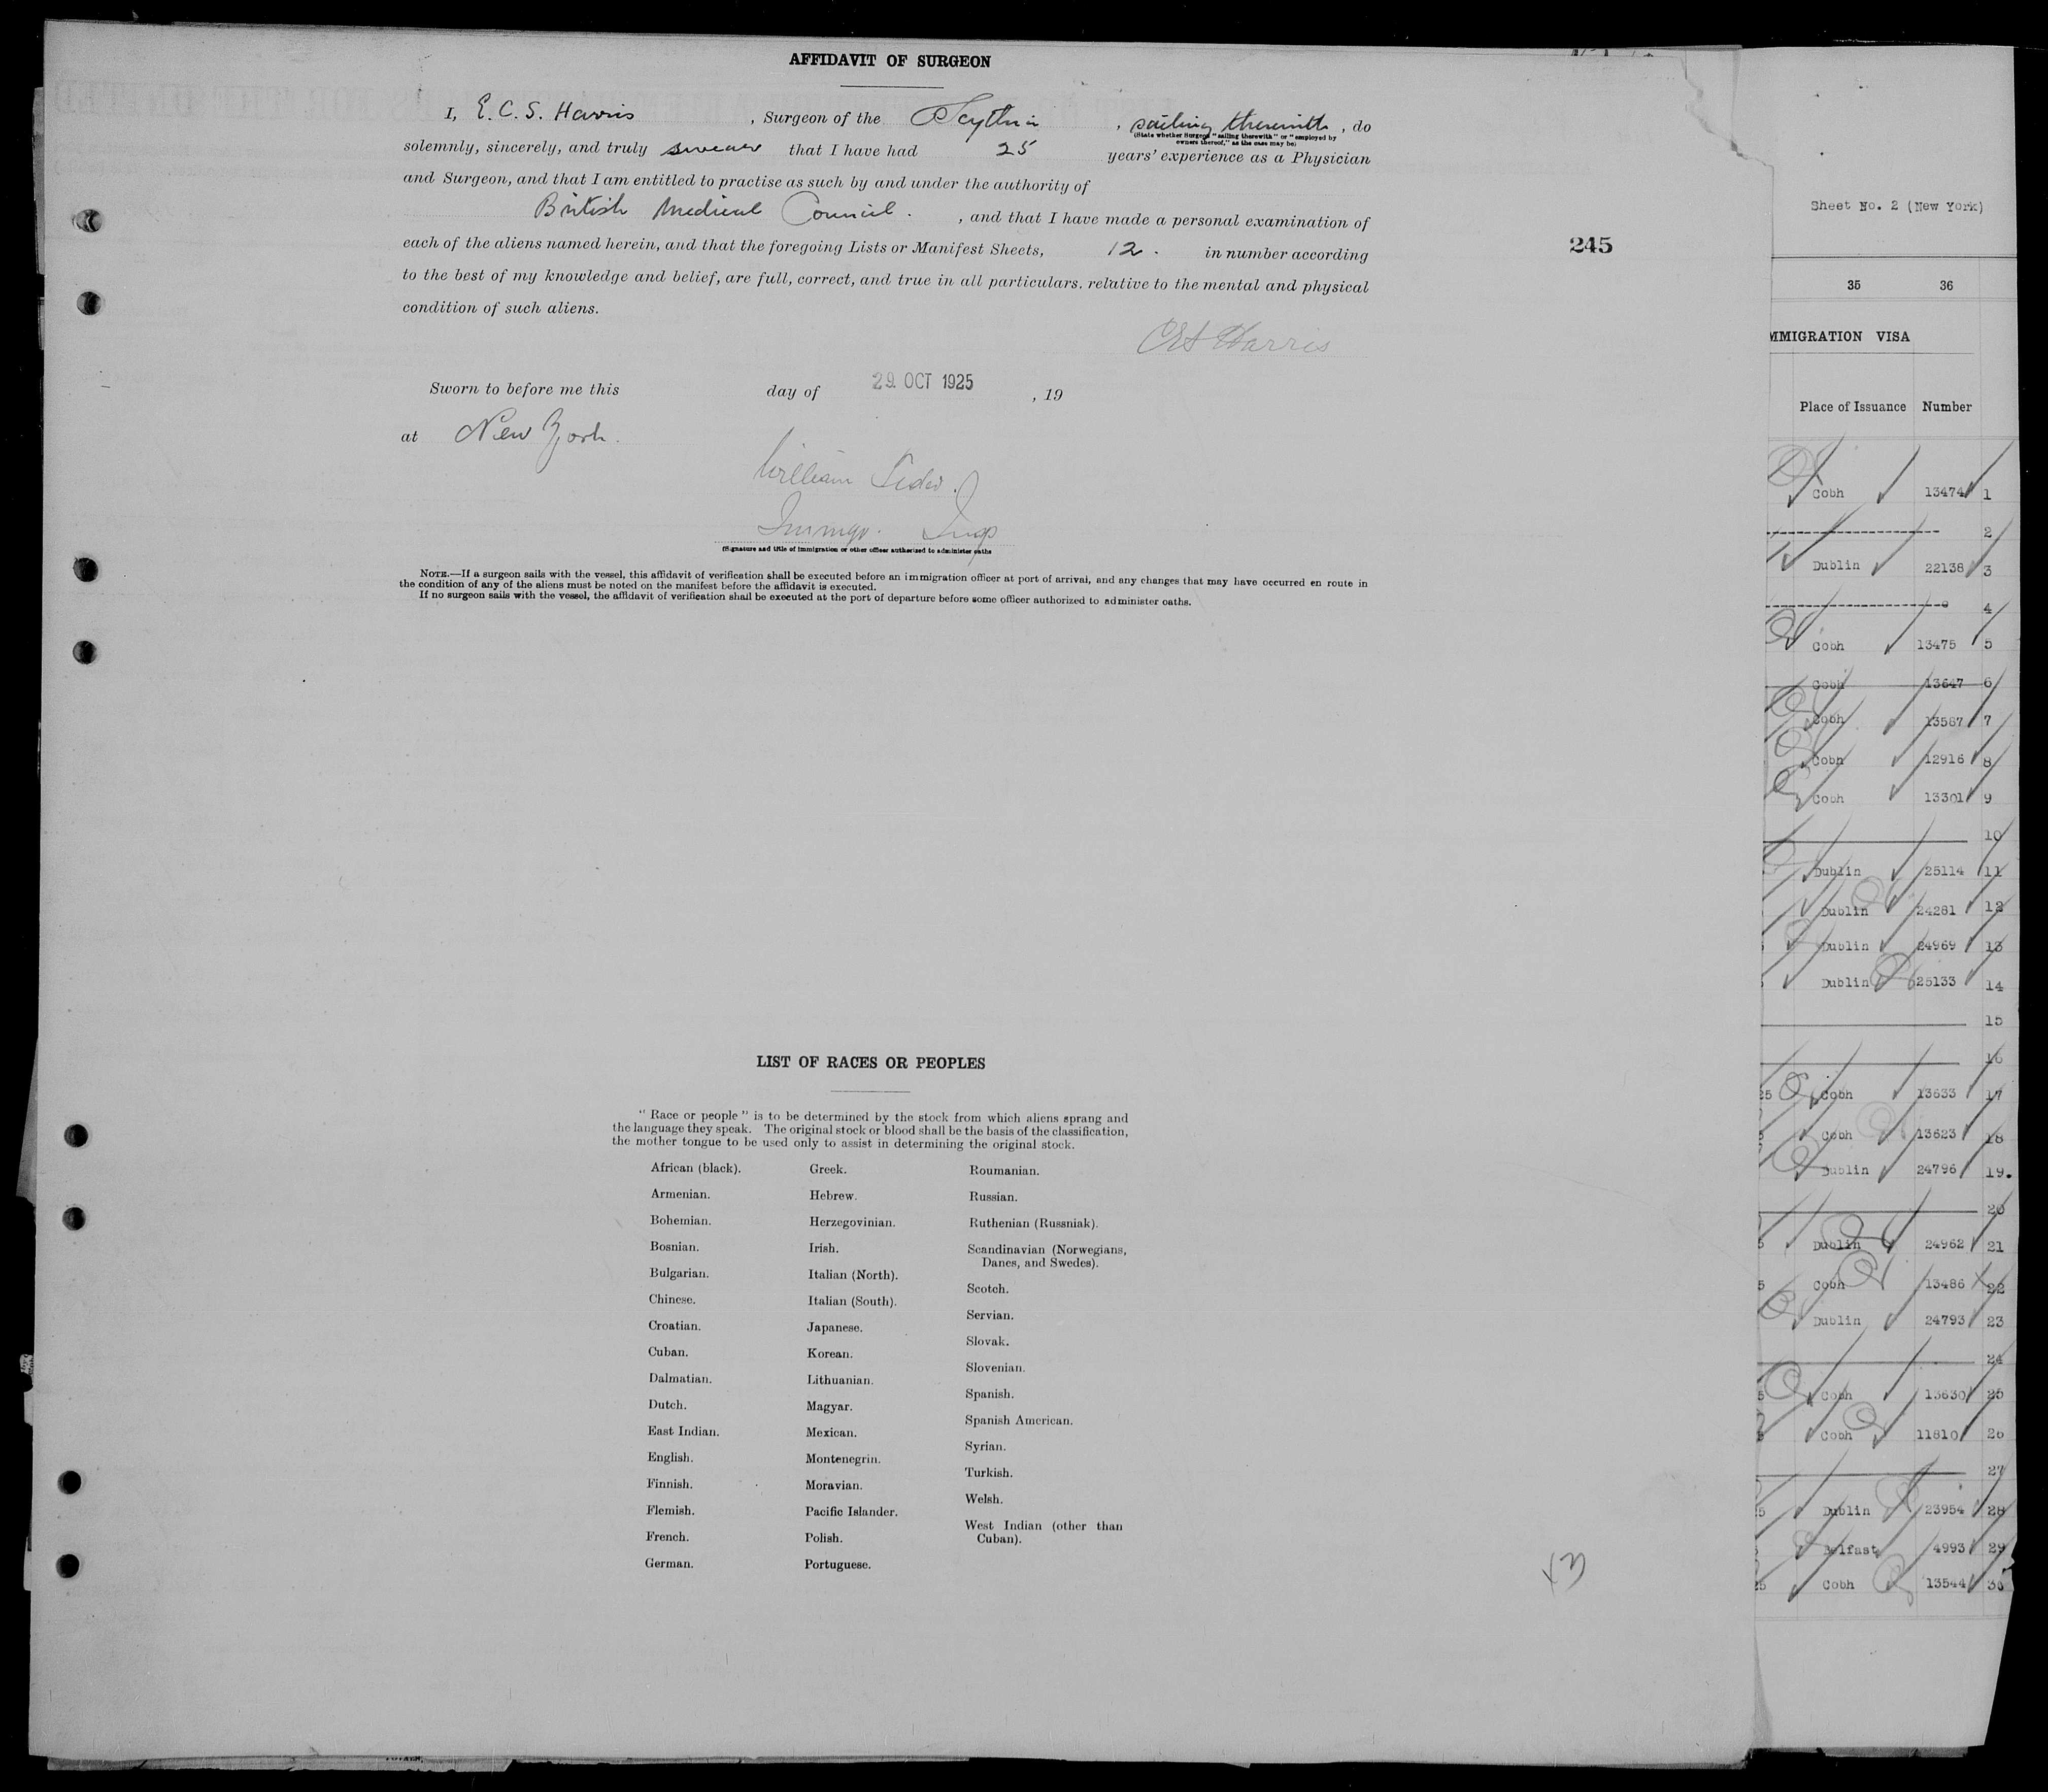 AFFIDAVIT OF SURGEON
I, E. C. S. Harris, Surgeon of the Scythia, sailing therewith, do
(State whether Surgeon "sailing therewith" or "employed by
owners thereof," as the case may be)
solemnly, sincerely, and truly swear that I have had 25 years' experience as a Physician
and Surgeon, and that I am entitled to practise as such by and under the authority of
British Medical Council. , and that I have made a personal examination of
each of the aliens named herein, and that the foregoing Lists or Manifest Sheets, 12. in number according
to the best of my knowledge and belief, are full, correct, and true in all particulars, relative to the mental and physical
condition of such aliens.
Harris
Sworn to before me this day of 29. OCT 1925, 19
at New York.
William
Immgr. Insp
(Signature and title of immigration or other officer authorized to administer oaths
NOTE.—If a surgeon sails with the vessel, this affidavit of verification shall be executed before an immigration officer at port of arrival, and any changes that may have occurred en route in
the condition of any of the aliens must be noted on the manifest before the affidavit is executed.
If no surgeon sails with the vessel, the affidavit of verification shall be executed at the port of departure before some officer authorized to administer oaths.
245
LIST OF RACES OR PEOPLES
"Race or people" is to be determined by the stock from which aliens sprang and
the language they speak. The original stock or blood shall be the basis of the classification,
the mother tongue to be used only to assist in determining the original stock.
African (black).
Armenian.
Bohemian.
Bosnian.
Bulgarian.
Chinese.
Croatian.
Cuban.
Dalmatian.
Dutch.
East Indian.
English.
Finnish.
Flemish.
French.
German.
Greek.
Hebrew.
Herzegovinian.
Irish.
Italian (North).
Italian (South).
Japanese.
Korean.
Lithuanian.
Magyar.
Mexican.
Montenegrin.
Moravian.
Pacific Islander.
Polish.
Portuguese.
Roumanian.
Russian.
Ruthenian (Russniak).
Scandinavian (Norwegians,
Danes, and Swedes).
Scotch.
Servian.
Slovak.
Slovenian.
Spanish.
Spanish American.
Syrian.
Turkish.
Welsh.
West Indian (other than
Cuban).
Sheet No. 2 (New York)
35 36
MMIGRATION VISA
Place of Issuance Number
Cobh 13474 1
2
Dublin 22138 3
4
Cobh 13475 5
Cobh 13647 6
Cobh 13587 7
Cobh 12916 8
Cobh 13301 9
10
Dublin 25114 11
Dublin 24281 12
Dublin 24969 13
Dublin 25133 14
15
16
25 Cobh 13633 17
Cobh 13623 18
Dublin 24796 19.
20
5 Dublin 24962 21
5 Cobh 13486 22
Dublin 24793 23
24
5 Cobh 13630 25
Cobh 11810 26
27
25 Dublin 23954 28
Belfast 4993 29
25 Cobh 13544 30